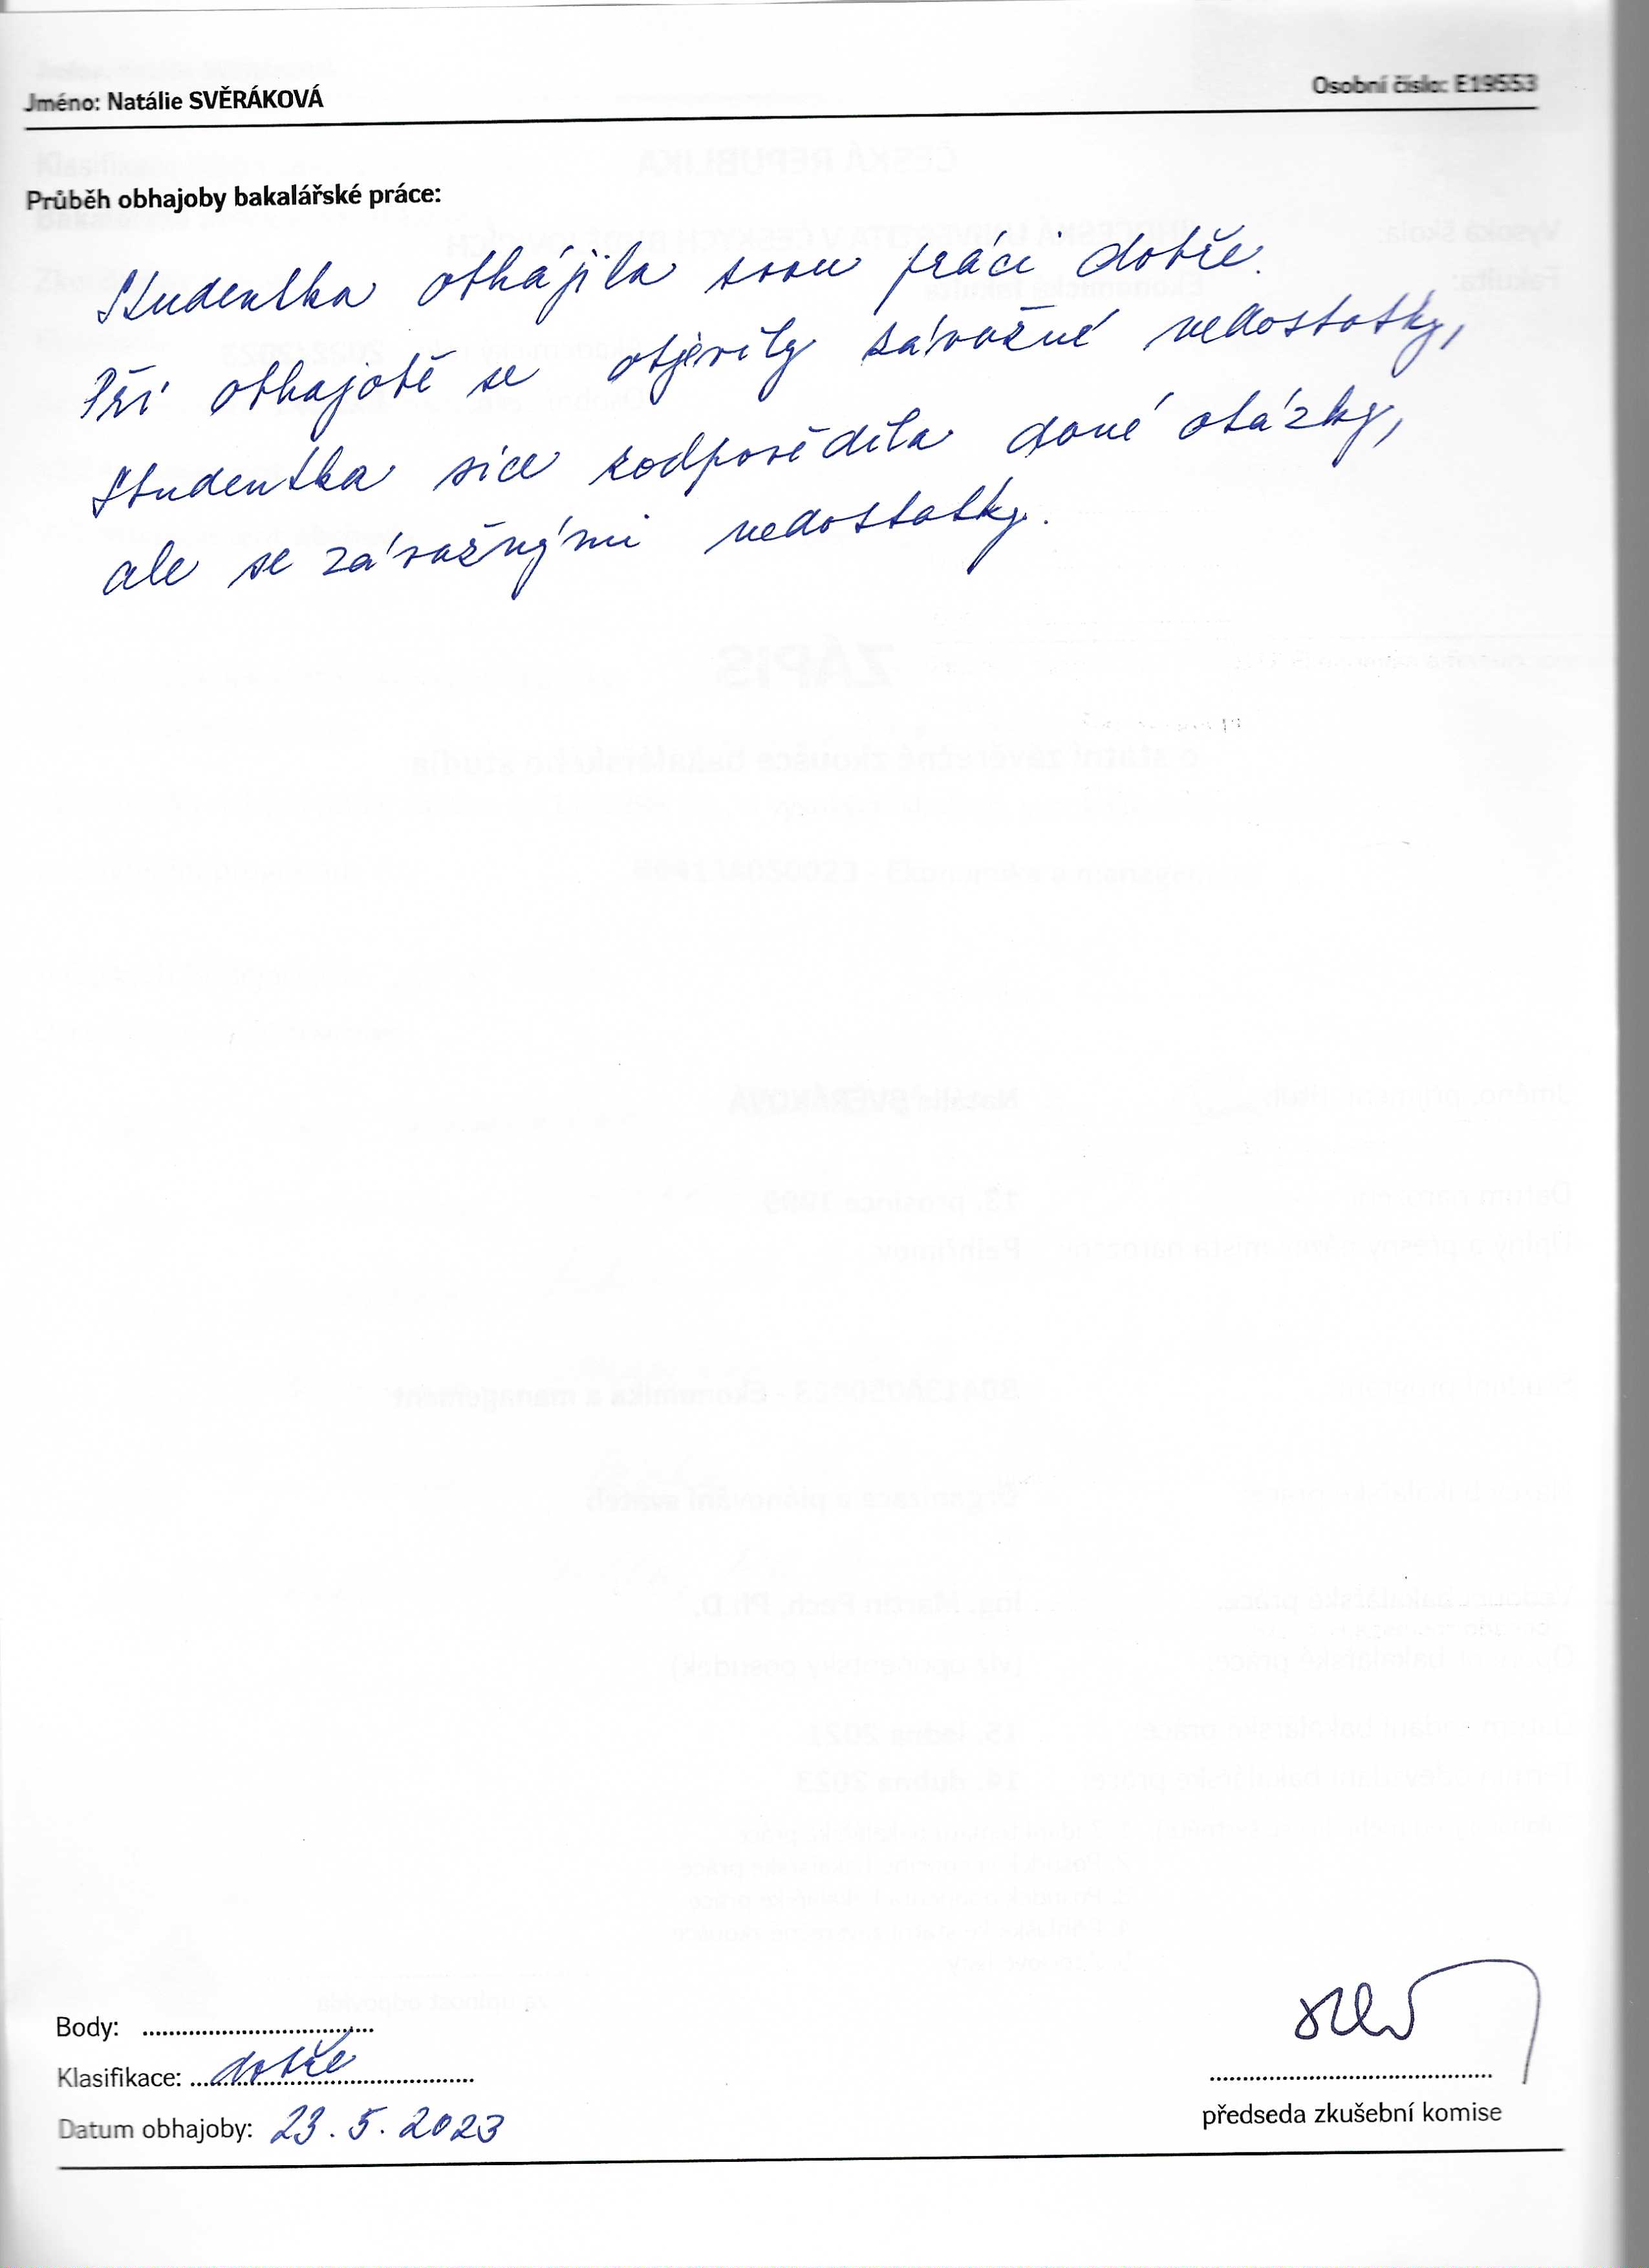 Jméno: Natálie SVĚRÁKOVÁ
Osobní číslo: E19553
Průběh obhajoby bakalářské práce:
Studentka obhájila svou práci dobře.
Při obhajobě se objevily závažné nedostatky,
studentka sice zodpověděla dané otázky,
ale se závažnými nedostatky.
Body:
Klasifikace: dobře
Datum obhajoby: 23. 5. 2023
předseda zkušební komise